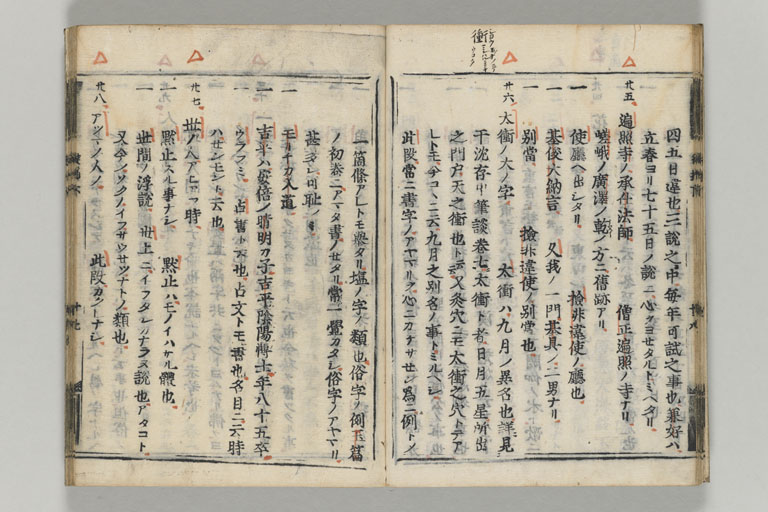 四五日違也三說之中毎年可試之事也兼好ハ
立春ヨリ七十五日ノ說ニ心ヲヨセタルトミヘタリ
廿五 遍照寺ノ承仕法師 僧正遍照ノ寺ナリ
嵯峨ノ廣澤ノ乾ノ方ニ舊跡アリ
使廳ヘ出シタリ 撿非違使ノ廳也
一 基俊大納言 又我ノ一門基具ノ二男ナリ
別當 撿非違使ノ別當也
廿六 太衝ノ大ノ字 太衝ハ九月ノ異名也詳見
于沈存中筆談巻七太衝ト者日月五星所出
之門戸天之衝也ト云々又灸穴ニモ太衝之穴トテア
レトモ今コヽニ云六九月之別名ノ事トミルヘシ
此段當ニ書字ノアヤマリヲ心ニカナサセン爲ニ例トシ
衝
一箇條アレトモ擧タリ塩ノ字ノ類也俗字ノ例玉篇
ノ初巻ニアマタ書ノセタリ常ニ覺カタシ俗字ノアヤマリ
甚多シ可耻
一 モリチカ入道
一 吉平ハ安倍ノ晴明カ子吉平陰陽博士年八十五卒
ウラフミ 占書ト云也占文トモ書也名目ニ六時
ハサンモント云也
廿七 世ノ人アヒアフ時
一 黙止スル事ナシ 黙止ハモノイハサル體也
一 世間ノ浮說 世上ニイフタシカナラヌ說也アタコト
又今ノソクノイフサウセツナトノ類也
廿八 アツマノ人ノ 此段カクレナシ